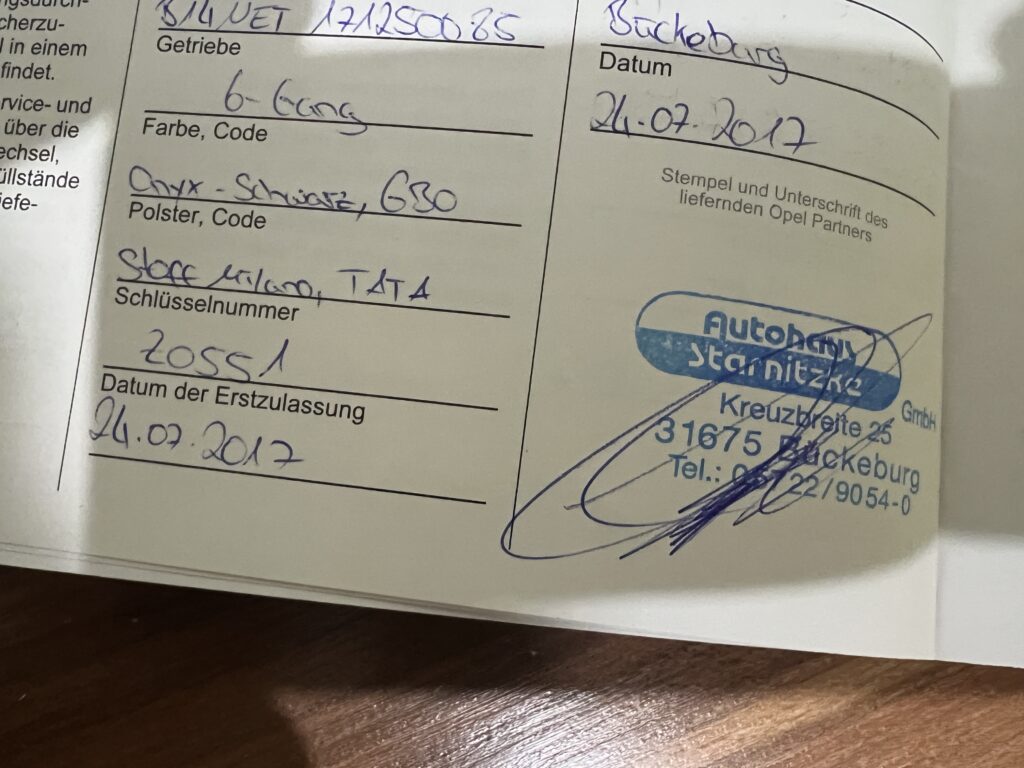 cherzu-
l in einem
findet.
rvice- und
über die
echsel,
üllstände
iefe-
B14NET 171250085
Getriebe
6-Gang
Farbe, Code
Onyx-Schwarz, GB0
Polster, Code
Stoff Milano, TATA
Schlüsselnummer
Z0551
Datum der Erstzulassung
24.07.2017
Bückeburg
Datum
24.07.2017
Stempel und Unterschrift des
liefernden Opel Partners
Autohaus
Starnitzke
GmbH
Kreuzbreite 25
31675 Bückeburg
Tel.: 05722/9054-0